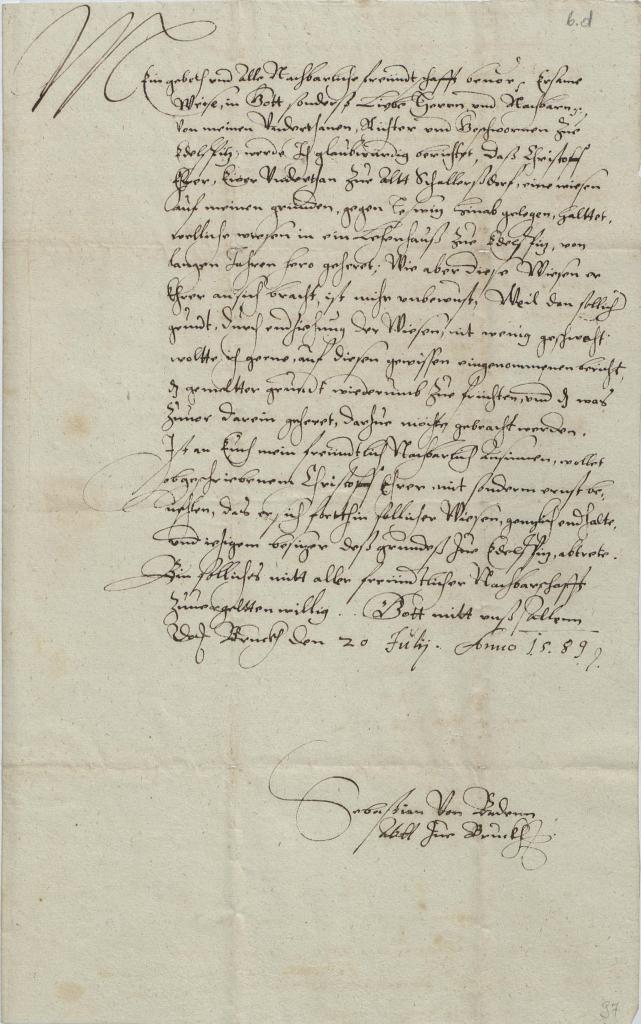 6.d
Mein gebeth und alle Nachbarliche freundtschafft beuor, Ersame
Weise, in Gott sonders Liebe Herrn, und Nachbaren,
Von meinen Underthanen, Richter und Geschwornen Zue
Edelspitz, werde Ich glaubwürdig berichtet, daß Christoff
Ehrer, Eurer Underthan Zue Altt Schallerßdorf, eine wiesen
auf meinen grunden, gegen hinab gelegen, halttet,
welliche wiesen in ein Lehenhauß Zue Edelspitz, von
langen Jahren hero geheret, Wie aber diese Wiesen er
Ehrer an sich bracht, ist mihr unbewust, Weil dan sollich
grundt, durch endziehung der Wiesen, nit wenig geschwecht
woltte ich gerne, auf diesen gewissen eingenommenen bericht,
dz gemeltter grundt wiederumb Zue früchten, und dz was
Zuuor darein geheret, darzue möchte gebracht werden.
Ist an Euch mein freundtlich Nachbarlich ansinnen, wollet
obgeschriebenem Christoff Ehrer, mit sonderm ernst be-
uehlen, das er sich fortthin sollicher Wiesen, genzlich endhalte,
und iezigem besizer deß grundeß Zue Edelspitz, abtrete.
Bin solliches mitt aller freundtlicher Nachbarschafft
Zuuergeltten willig. Gott mitt unß Allenn
Bruckh den 20 Julij. Anno 1589.
Sebastian Von
Abtt Zue Bruckh
97